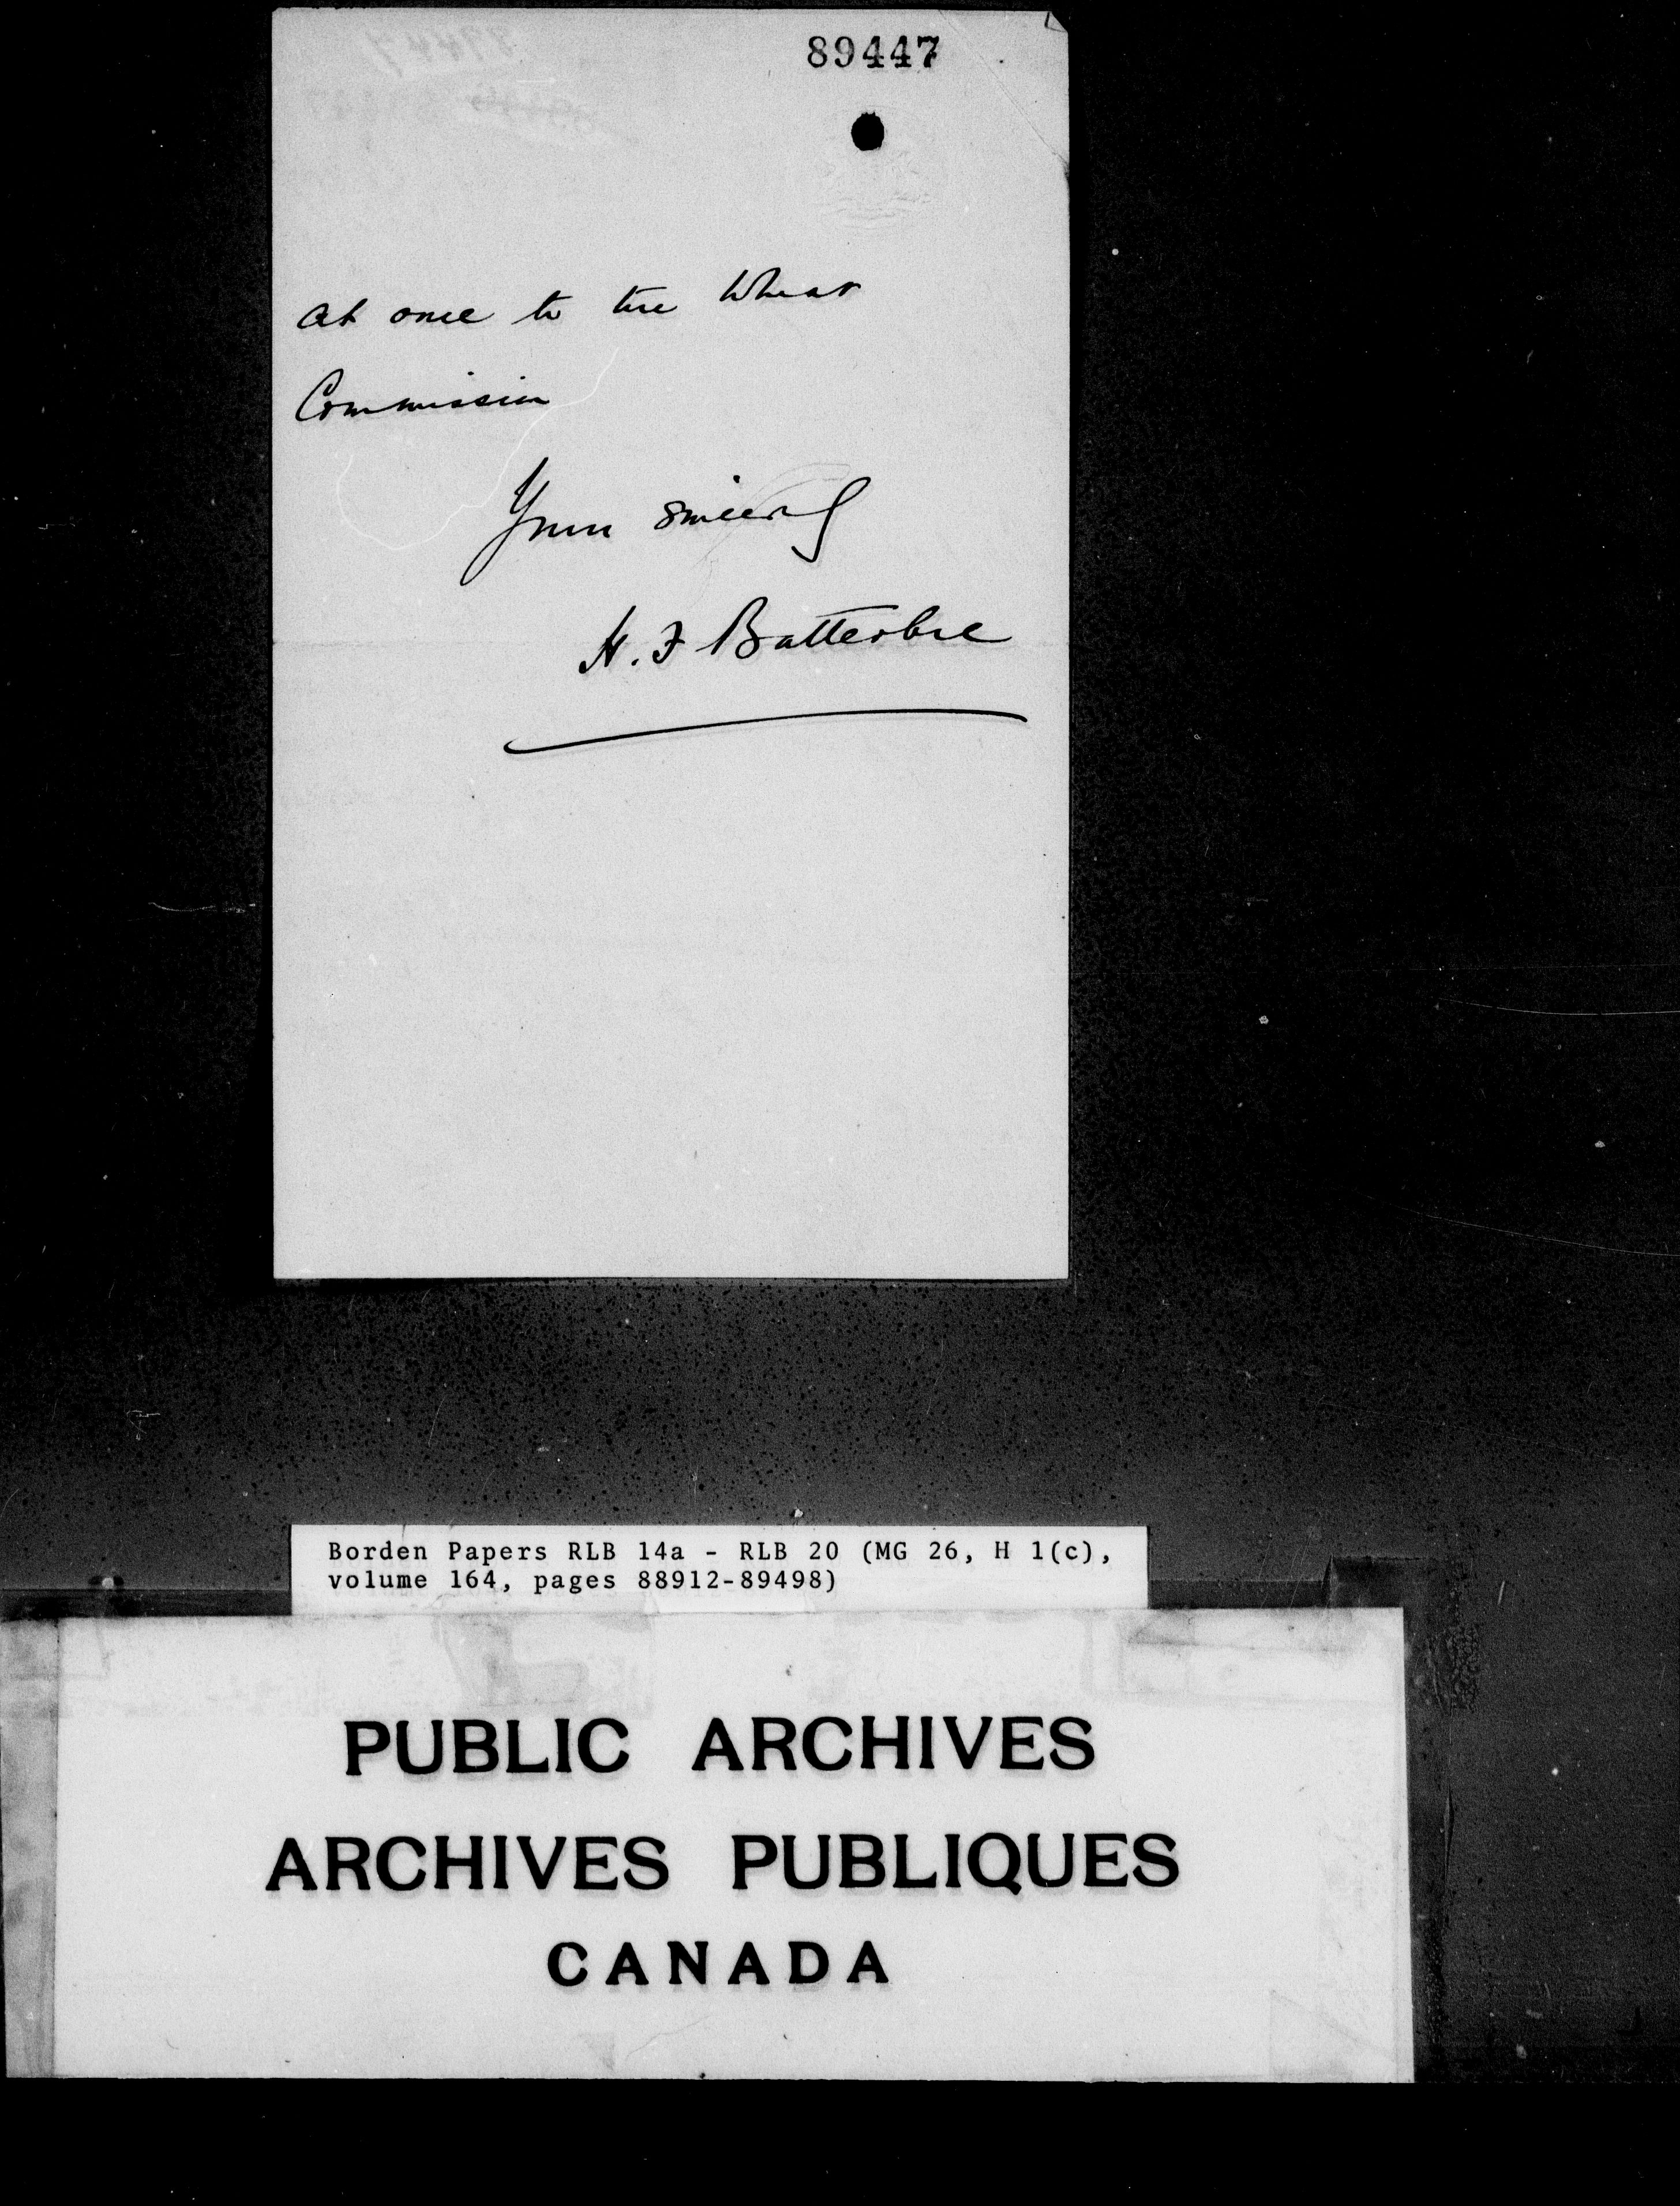 89447
at once to the Wheat
Commission
Yours sincerely
H. F Batterbee
Borden Papers RLB 14a - RLB 20 (MG 26, H 1(c),
volume 164, pages 88912-89498)
PUBLIC ARCHIVES
ARCHIVES PUBLIQUES
CANADA